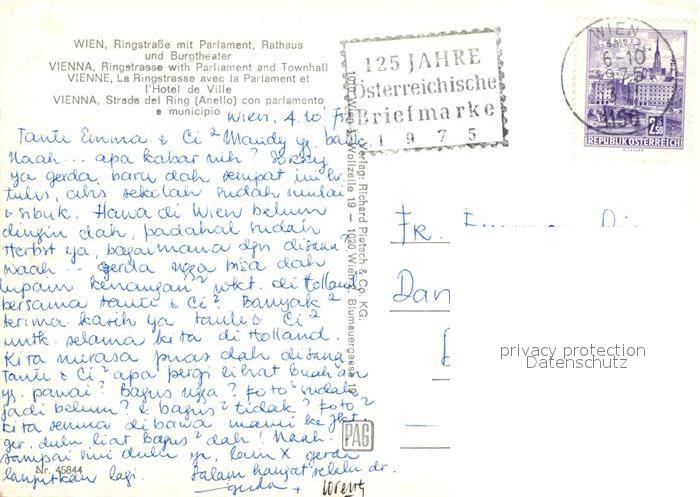 WIEN, Ringstraße mit Parlament, Rathaus
und Burgtheater
VIENNA, Ringstrasse with Parlament and Townhall
VIENNE, La Ringstrasse avec la Parlament et
l'Hotel de Ville
VIENNA, Strada del Ring (Anello) con parlamento
e municipio
Wien, 4.10
Tante Emma & Ci² Maudy yg. baik
Naah... apa kabar nih?
ya gerda baru dah sempat ini hr.
tulis, abis sekolah sudah mulai
& sibuk. Hawa di Wien belum
dingin dah, padahal sudah
Herbst ya, bagaimana dgn. disana
naah... gerda ngga bisa dah
lupain kenangan² wkt. di Holland
bersama tante & Ci². Banyak²
terima kasih ya tante & Ci²
untk. selama kita di Holland.
Kita merasa puas dah disana.
Tante & Ci² apa pergi lihat buah'an
yg. panai? Bagus ngga? Foto² sudah
jadi belum? & bagus² tidak? Foto²
kita semua dibawa mami ke Jkt.
ger. dulu liat bagus² dah! Naah.
sampai sini dulu ya, lain X gerda
lanjutkan lagi. Salam hangat selalu dr.
gerda +
Nr. 45844
125 JAHRE
Österreichische
Briefmarke
1975
Verlag: Richard Pietsch & Co. KG.
1010 Wien, Wollzeile 19 — 1020 Wien, Blumauergasse 19
PAG
WIEN
6-10
1150
LINZ
2.50
REPUBLIK ÖSTERREICH
Fr.
Dan
privacy protection
Datenschutz